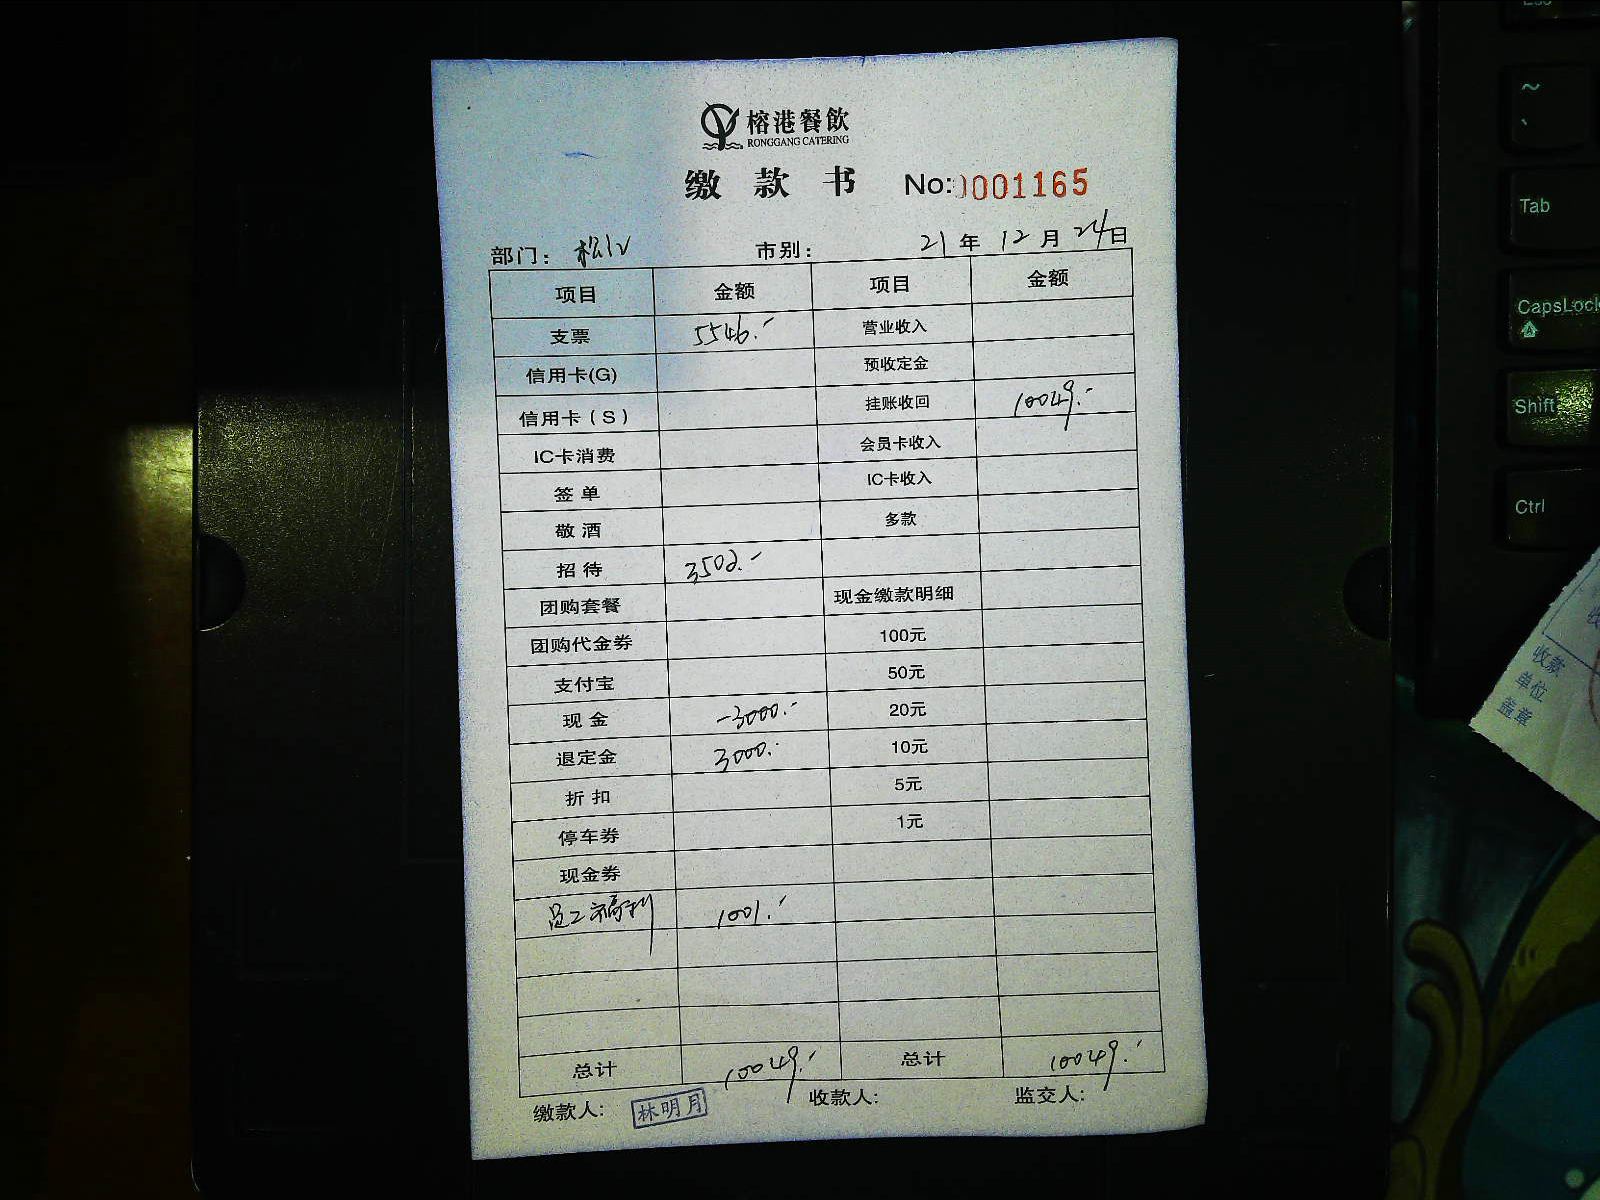 榕港餐飲
RONGGANG CATERING
缴款书 No:0001165
部门：松江 市别： 21年12月24日
项目 金额 项目 金额
支票 5546.- 营业收入
信用卡(G) 预收定金
信用卡（S） 挂账收回 10049.-
IC卡消费 会员卡收入
签单 IC卡收入
敬酒 多款
招待 3502.-
团购套餐 现金缴款明细
团购代金券 100元
支付宝 50元
现金 -3000.- 20元
退定金 3000.- 10元
折扣 5元
停车券 1元
现金券
员工福利 1001.-
总计 10049.- 总计 10049.-
缴款人: 林明月 收款人: 监交人:
~
`
Tab
CapsLock
Shift
Ctrl
收款
单位
盖章